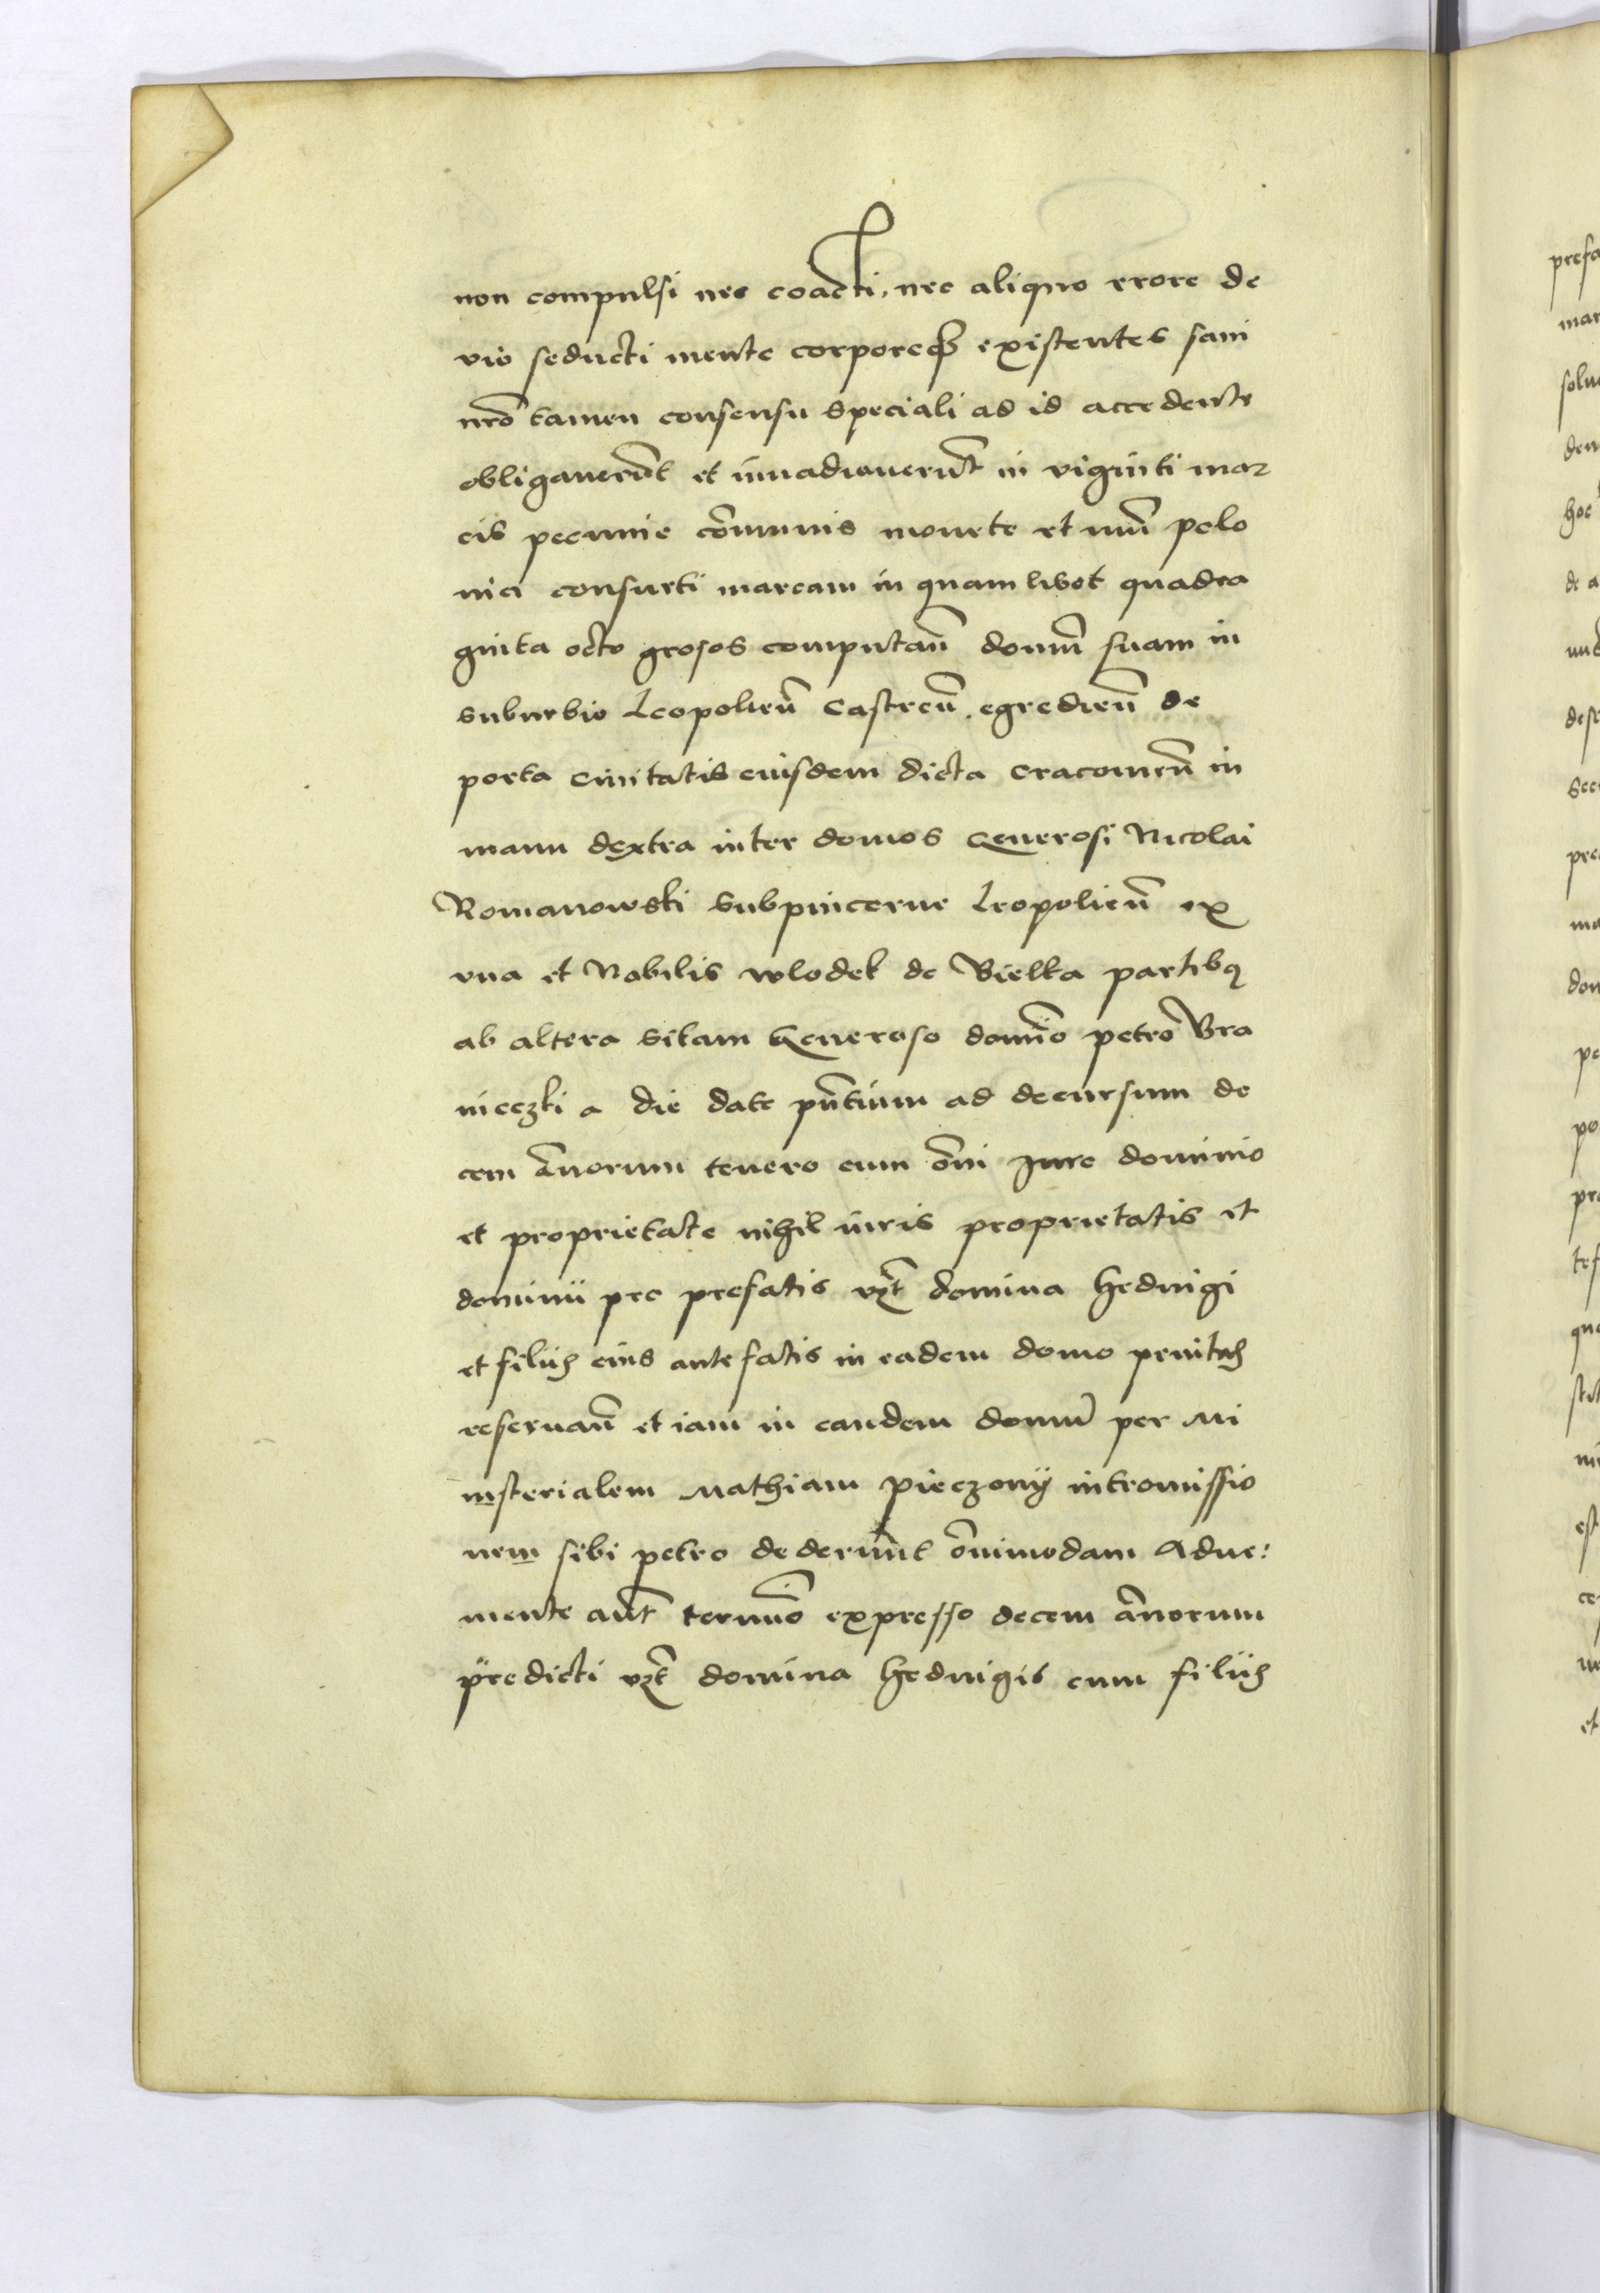 non compulsi nec coacti, nec aliquo erore de
vio seducti mente corporeqȝ existentes sani
nr̄o tamen consensu speciali ad id accedente
obligaverūt et inuadiauerūt in viginti mar
cis pecunie cōmunis monete et nūi polo
nici consueti marcam in quamlibet quadra
ginta octo grosos computan̄ domū suam in
suburbio Leopolien̄ castren̄. egredien̄ de
porta ciuitatis eiusdem dicta cracouien̄ in
manu dextra inter domos Generosi Nicolai
Romanowski subpincerne Leopolien̄ ex
vna et Nobilis wlodek de Bielka partibꝯ
ab altera sitam Generoso domīo petro Bra
nieczki a die date pn̄tium ad decursum de
cem ānorum tenero cum ōni Jure dominio
et proprietate nihil iuris proprietatis et
dominii pro prefatis vzt̄ domina hedwigi
et filiis eius antefatis in eadem domo penitus
reseruan̄ et iam in eandem domū per Mi
nisterialem Mathiam pieczony intromissio
nem sibi petro dederunt ōnimodam Adue:
niente aūt termīo expresso decem ānorum
predicti vzt̄ domina hedwigis cum filiis
prefa
mar
solu
den
hoc
de a
desr
prec
ma
don
po
pre
tes
quo
est
et